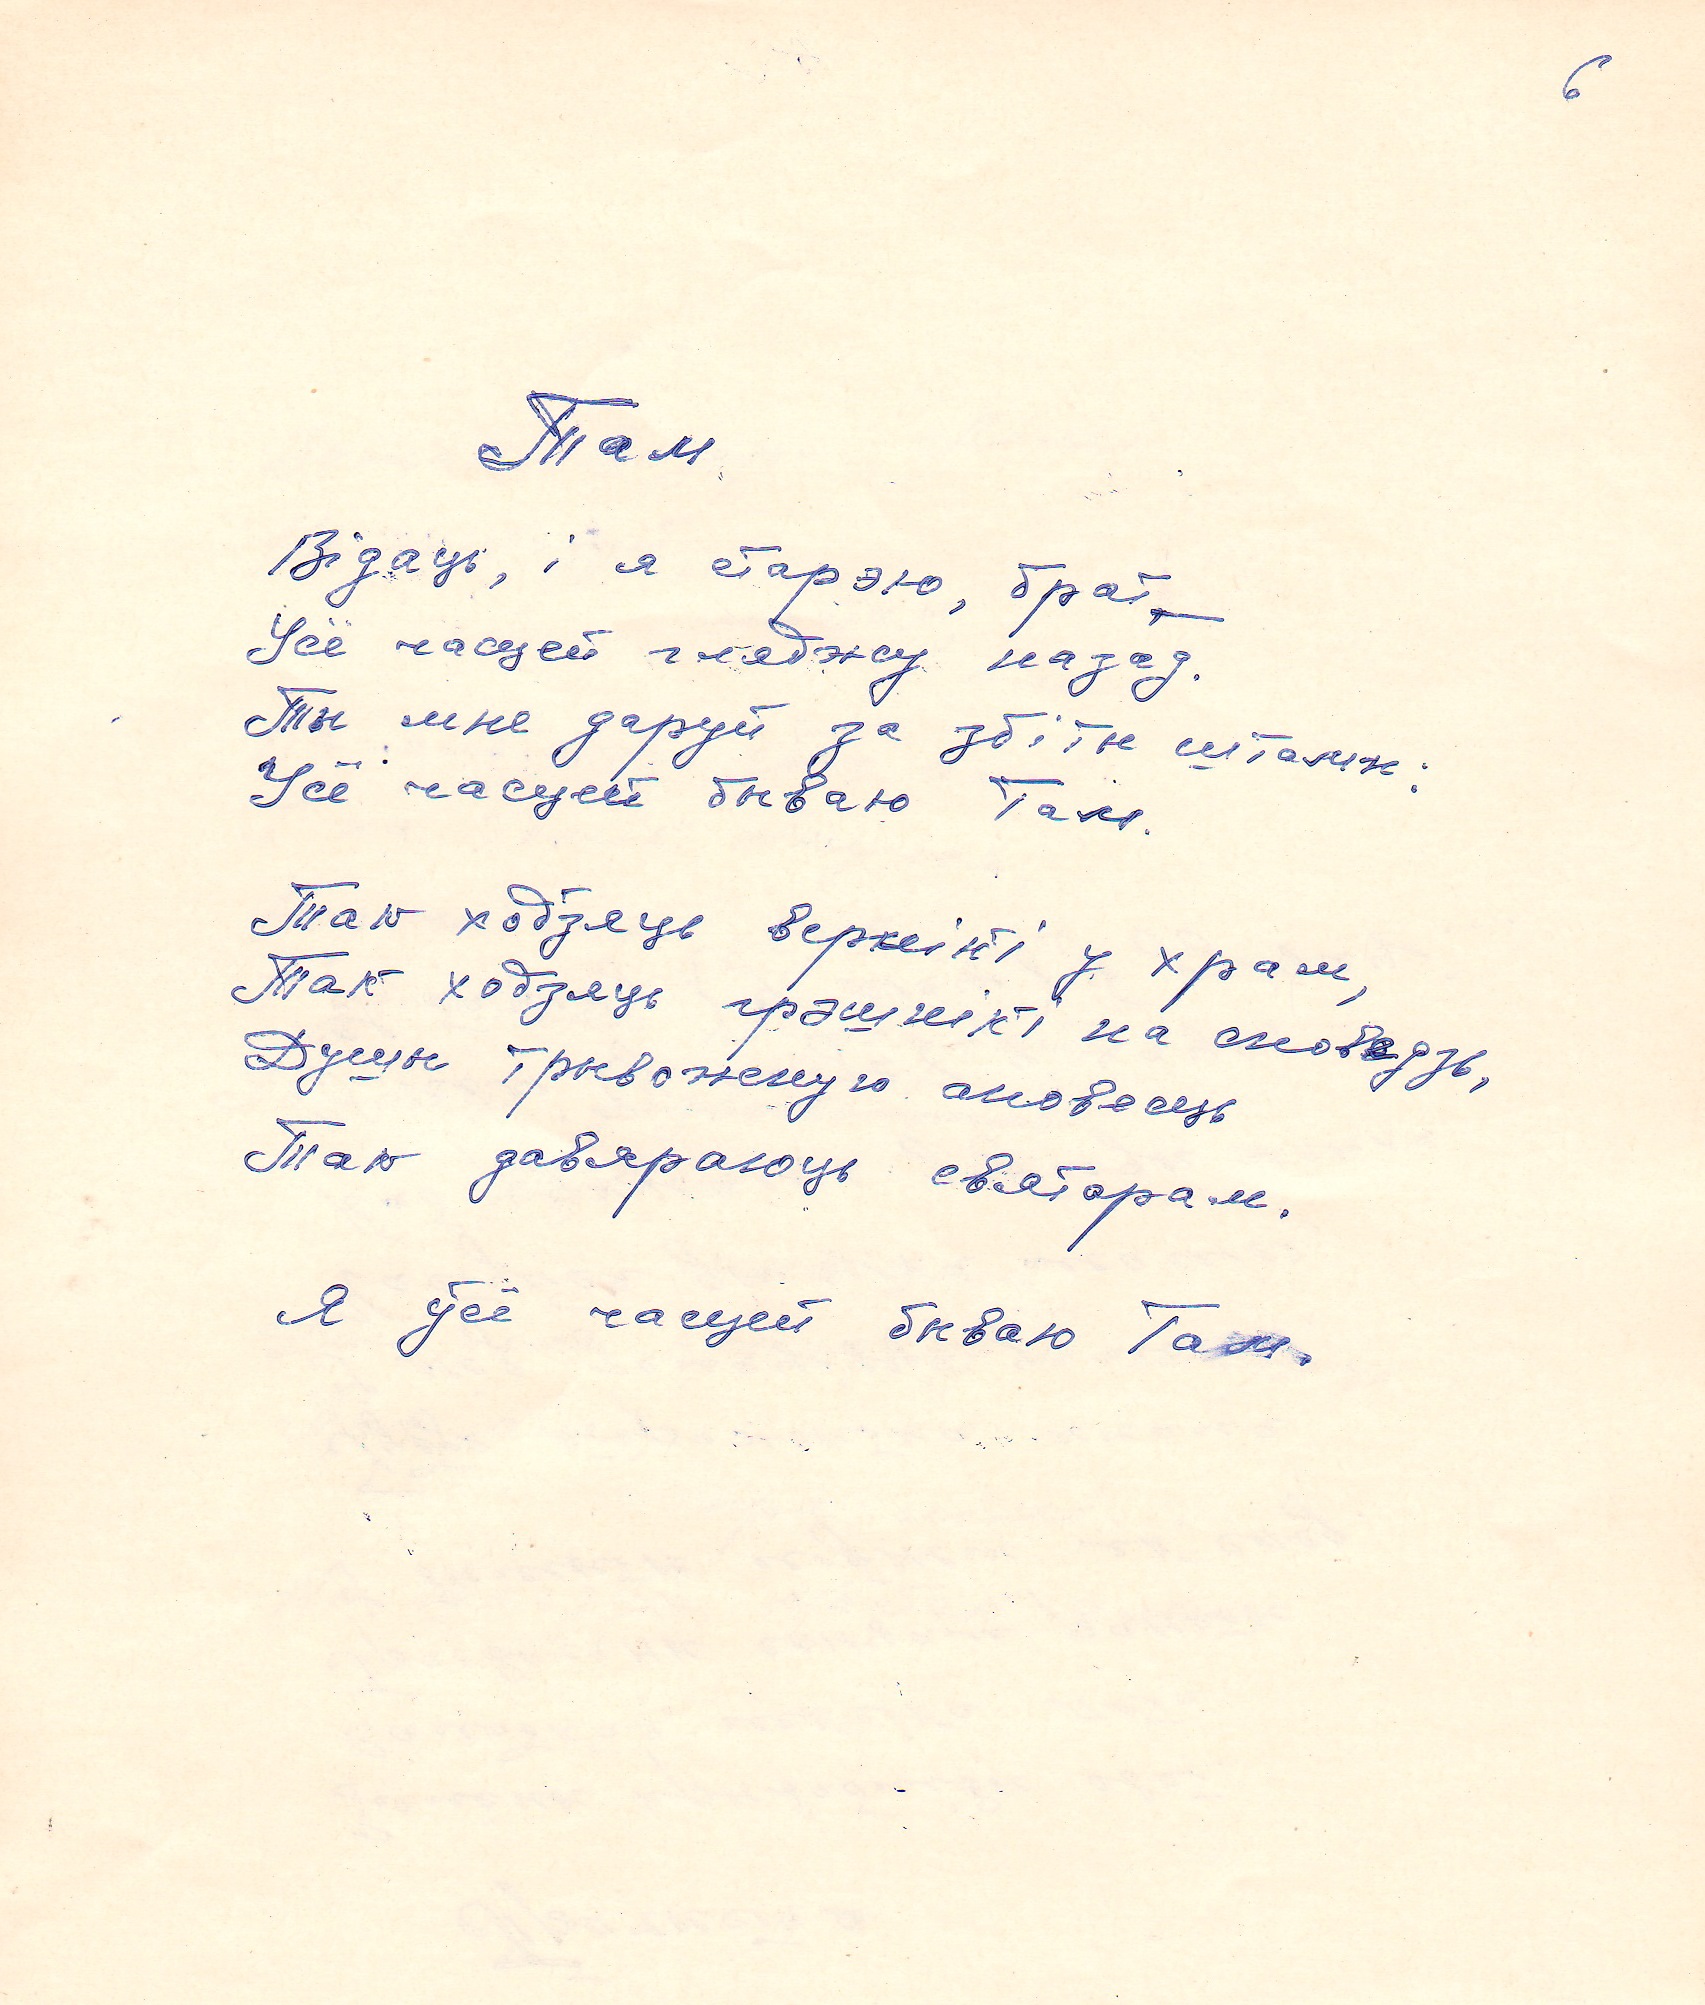 6
Там
Відаць, і я старэю, брат, —
Усё часцей гляджу назад.
Ты мне даруй за збіты штамп:
Усё часцей бываю Там.
Так ходзяць вернікі ў храм,
Так ходзяць грэшнікі на споведзь,
Душы трывожную споведзь
Так давяраюць святарам.
Я ўсё часцей бываю Там.